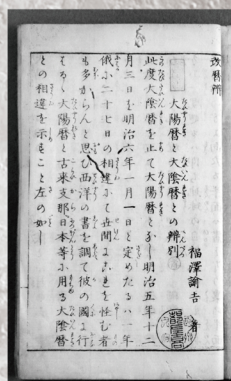 改暦辨
太陽暦と太陰暦との辨別
福澤諭吉 著
此度大陰暦を止て大陽暦となし明治五年十二
月三日を明治六年一月一日と定めたるハ一年
俄に二十七日の相違にて世間にこれを怪む者
も多からんと思ひ西洋の書を調て彼の國に行
はるゝ大陽暦と古来支那日本等に用る大陰暦
との相違を示すこと左の如し